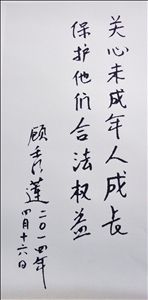 关心未成年人成长
保护他们合法权益
顾秀莲
二〇一四年
四月十六日